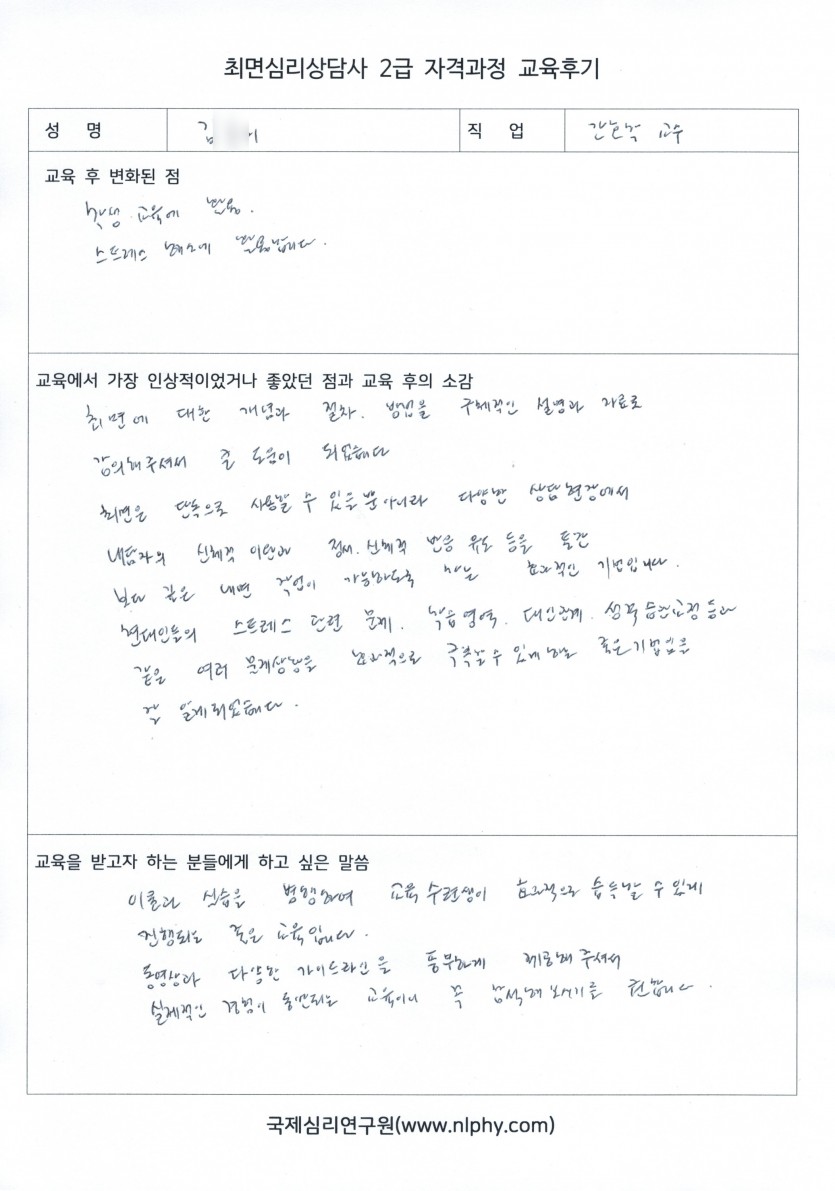 최면심리상담사 2급 자격과정 교육후기
성 명 김
직 업 간호학 교수
교육 후 변화된 점
학생 교육에 반영.
스트레스 해소에 활용합니다.
교육에서 가장 인상적이었거나 좋았던 점과 교육 후의 소감
최면에 대한 개념과 절차, 방법을 구체적인 설명과 자료로
강의해주셔서 큰 도움이 되었습니다
최면은 단독으로 사용할 수 있을 뿐 아니라 다양한 상담현장에서
내담자의 신체적 이완과 정서, 신체적 반응 유도 등을 통한
보다 깊은 내면 작업이 가능하도록 하는 효과적인 기법입니다.
현대인들의 스트레스 관련 문제, 학습영역, 대인관계, 생활습관교정 등과
같은 여러 문제상황을 효과적으로 극복할 수 있게 하는 좋은 기법임을
잘 알게 되었습니다.
교육을 받고자 하는 분들에게 하고 싶은 말씀
이론과 실습을 병행하여 교육 수련생이 효과적으로 습득할 수 있게
진행되는 좋은 교육입니다.
동영상과 다양한 가이드라인을 풍부하게 제공해 주셔서
실제적인 경험이 동반되는 교육이니 꼭 참석해 보시기를 권합니다.
국제심리연구원(www.nlphy.com)